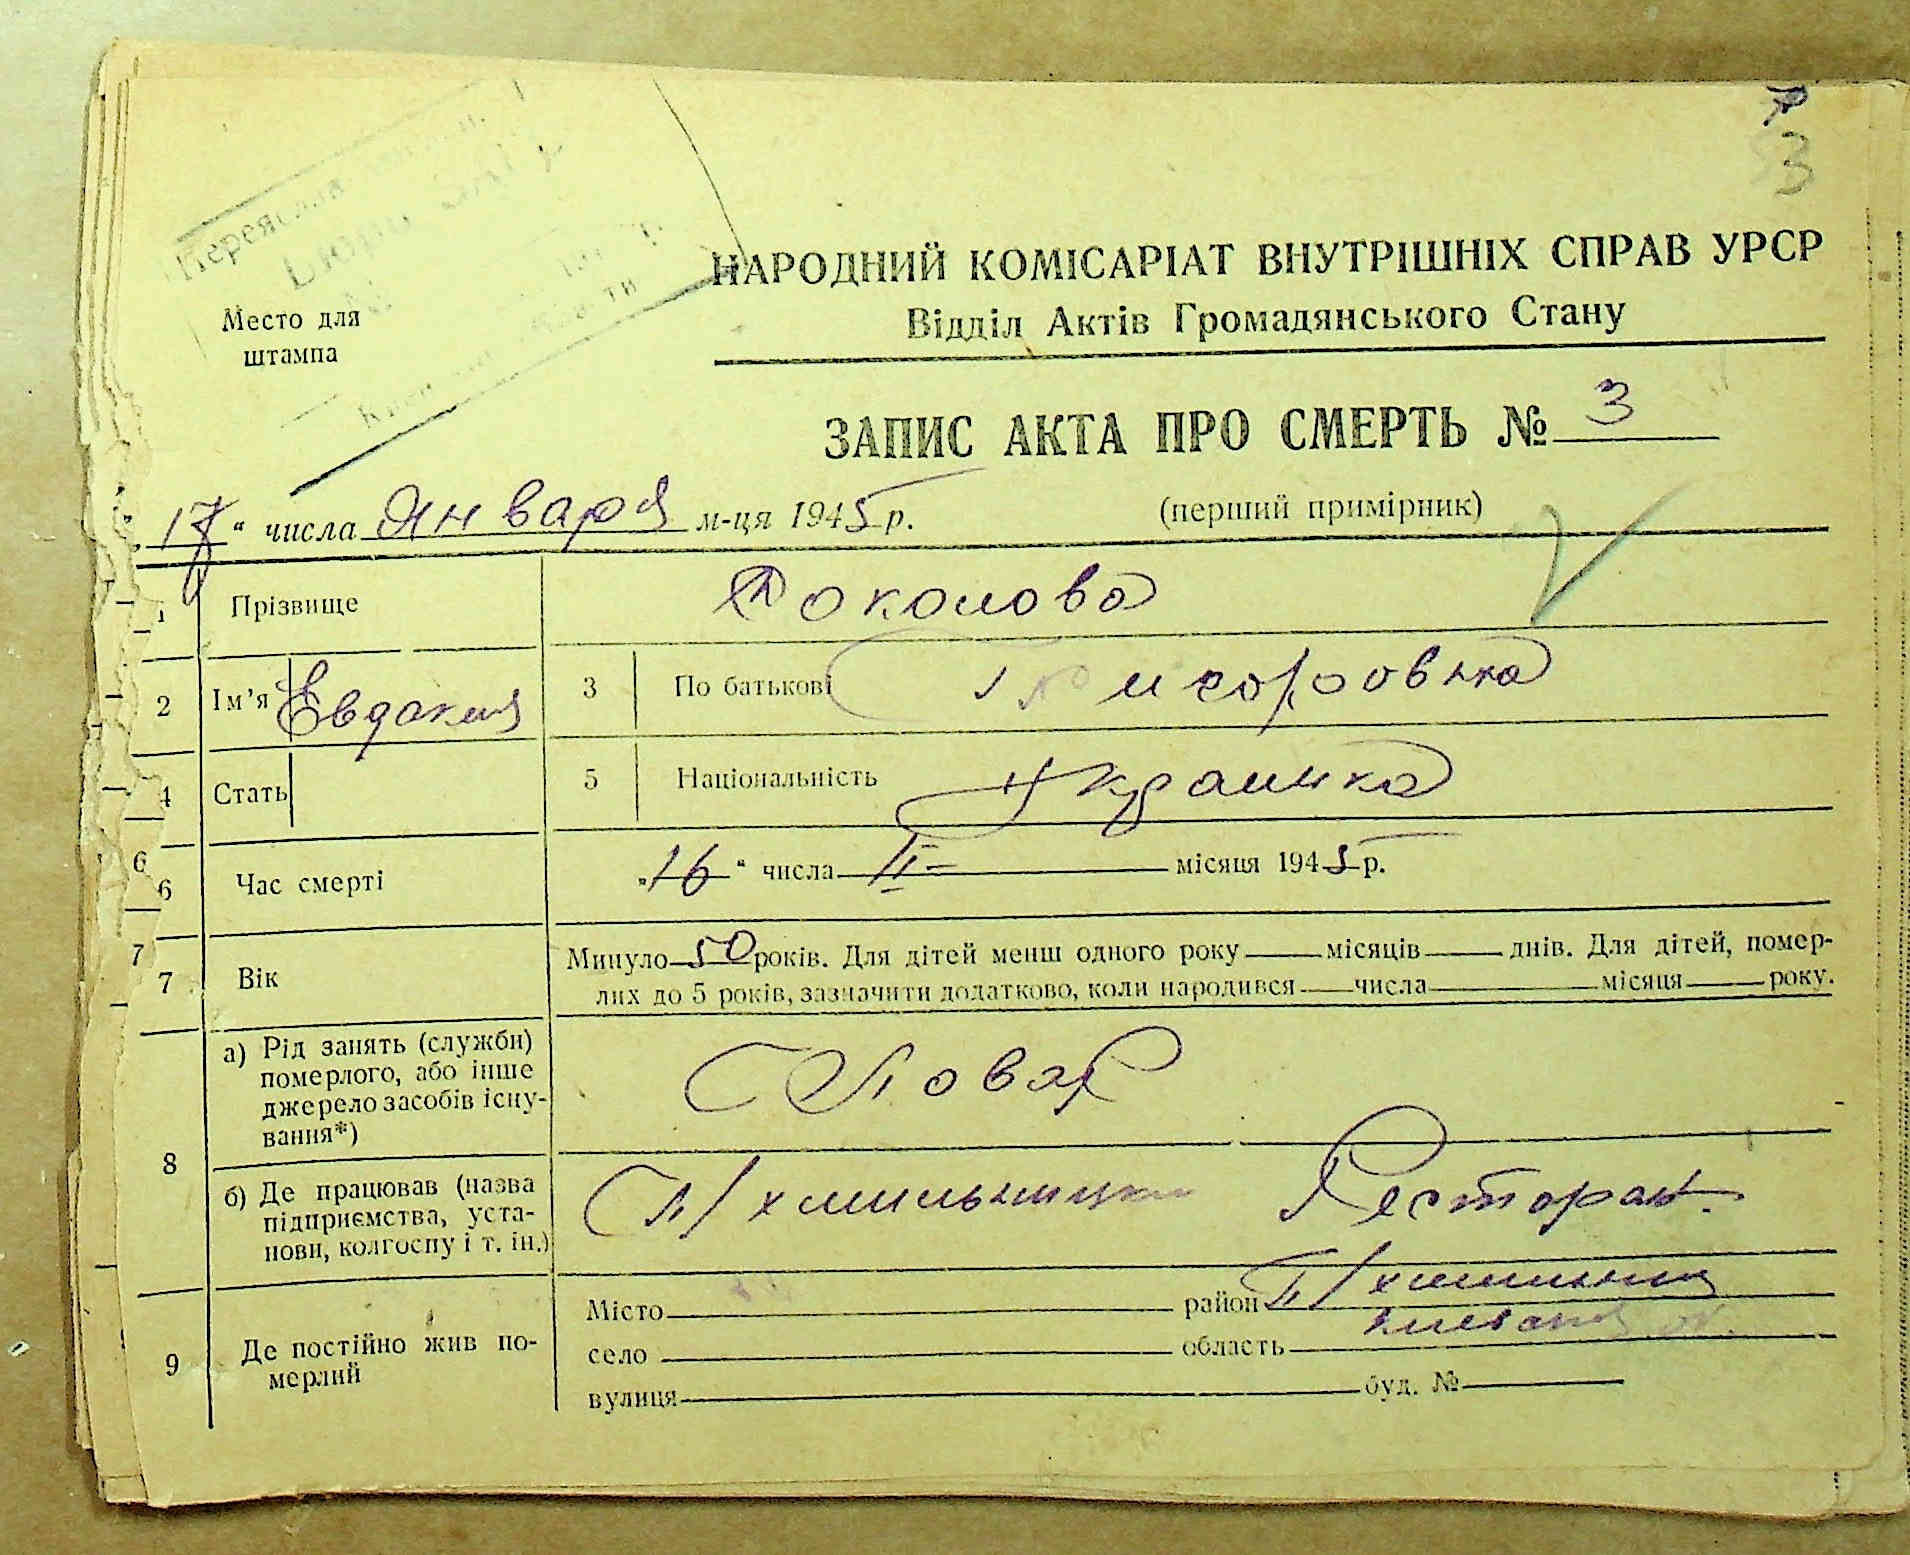 3
Место для
штампа
НАРОДНИЙ КОМІСАРІАТ ВНУТРІШНІХ СПРАВ УРСР
Відділ Актів Громадянського Стану
ЗАПИС АКТА ПРО СМЕРТЬ № 3
(перший примірник)
„17“ числа Января м-ця 1945 р.
1 Прізвище Соколова
2 Ім'я Евдокия 3 По батькові
4 Стать 5 Національність Украинка
6 Час смерті „16“ числа місяця 1945 р.
7 Вік Минуло 50 років. Для дітей менш одного року місяців днів. Для дітей, помер-
лих до 5 років, зазначити додатково, коли народився числа місяця року.
8 а) Рід занять (служби)
померлого, або інше
джерело засобів існу-
вання*)
Повар
б) Де працював (назва
підприємства, уста-
нови, колгоспу і т. ін.)
П/хмильницкий Ресторан.
9 Де постійно жив по-
мерлий
Місто район П/хмильниц
село область Киевская
вулиця буд. №